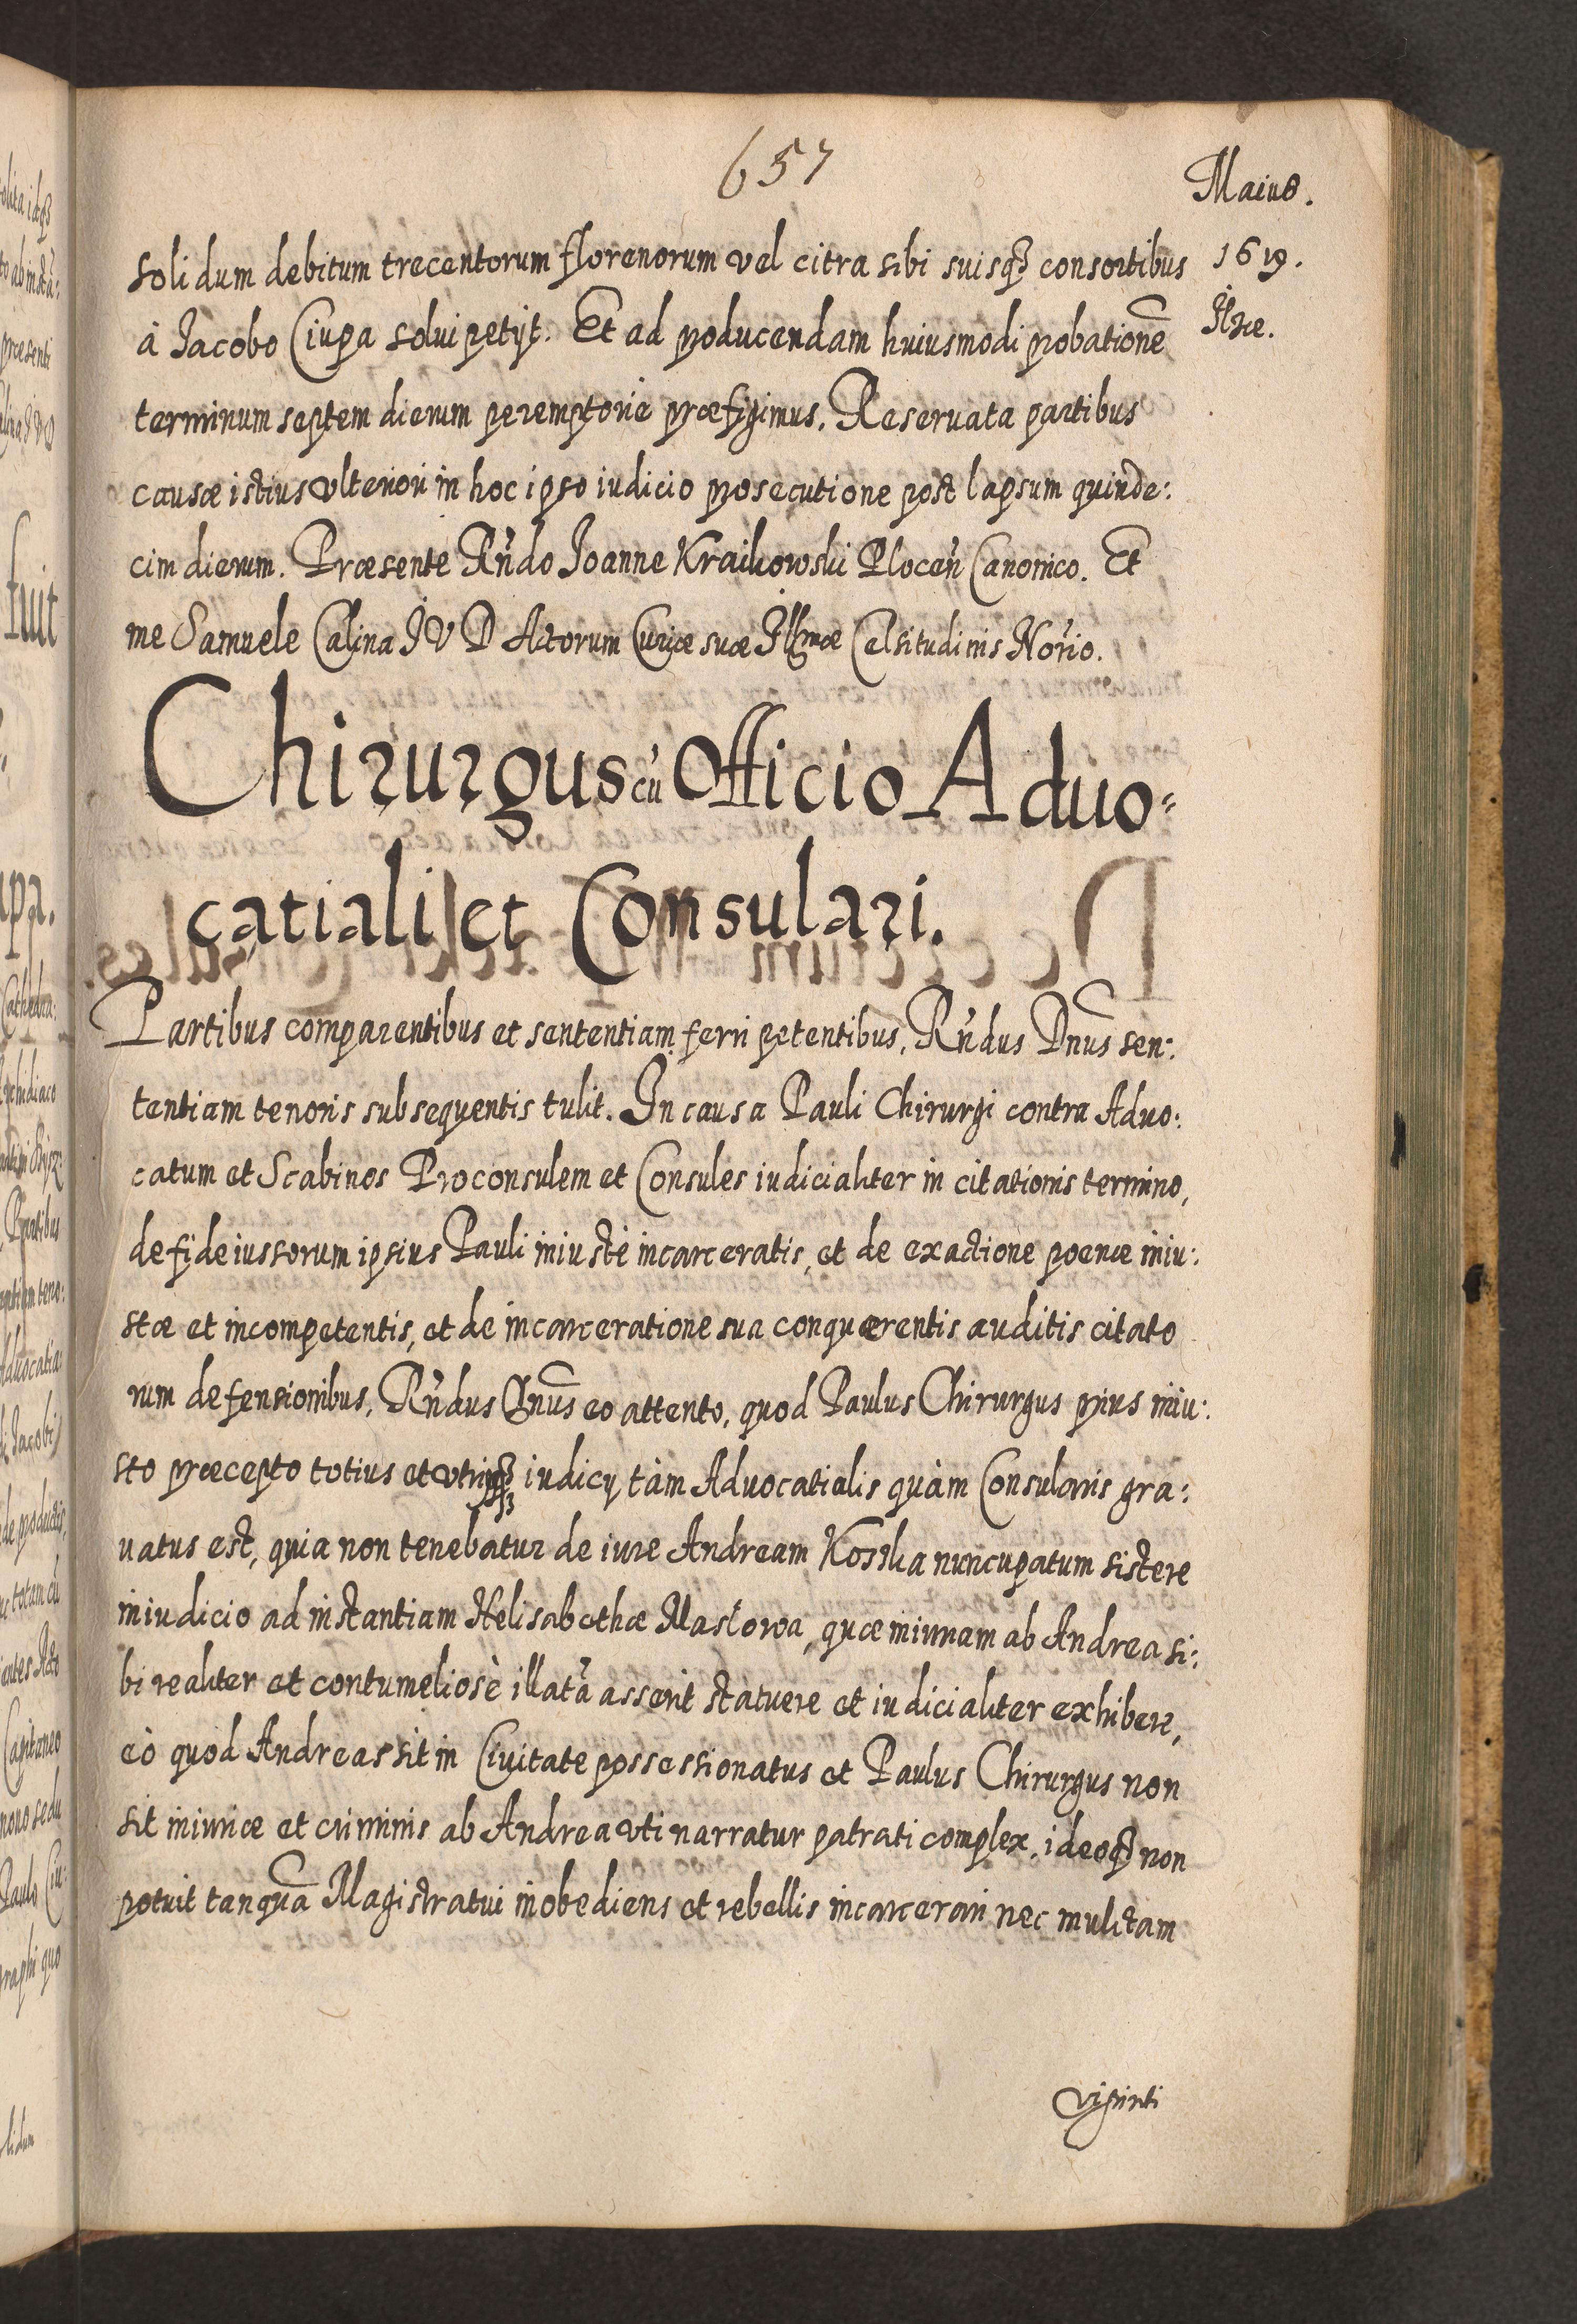 657
Maius.
1619.
Ilzæ.
solidum debitum trecentorum florenorum vel citra sibi suisq₃ consortibus
à Jacobo Ciupa solui petijt. Et ad producendam huiusmodi probationẽ
terminum septem dierum peremptoriè præfigimus. Reseruata partibus
causæ istius vlteriori in hoc ipso iudicio prosecutione post lapsum quinde:
cim dierum. Præsente Rñdo Joanne Kraikowski Plocen̄ Canonico. Et
me Samuele Calina J V D Actorum Curiæ suæ Illmæ Celsitudinis Norio.
Chirurgus cũ Officio Aduo=
catiali et Consulari.
Partibus comparentibus et sententiam ferri petentibus, Rñdus Dnus sen:
tentiam tenoris subsequentis tulit. In causa Pauli Chirurgi contra Aduo:
catum et Scabinos Proconsulem et Consules iudicialiter in citationis termino,
de fideiussorum ipsius Pauli iniustè incarceratis, et de exactione poenæ iniu:
stæ et incompetentis, et de incarceratione sua conquerentis auditis citato
rum defensionibus, Rñdus Dnus eo attento, quod Paulus Chirurgus prius iniu:
sto præcepto totius et vtriusq₃ iudicij tàm Aduocatialis quàm Consularis gra:
uatus est, quia non tenebatur de iure Andream Koszka nuncupatum sistere
in iudicio ad instantiam Helisabethæ Masłowa, quæ iniuriam ab Andrea si:
bi realiter et contumeliosè illatã asserit statuere et iudicialiter exhibere,
eò quod Andreas sit in Ciuitate possessionatus et Paulus Chirurgus non
sit iniuriæ et criminis ab Andrea vti narratur patrati complex, ideoq₃ non
potuit tanquã Magistratui inobediens et rebellis incarcerari nec mulctam
viginti